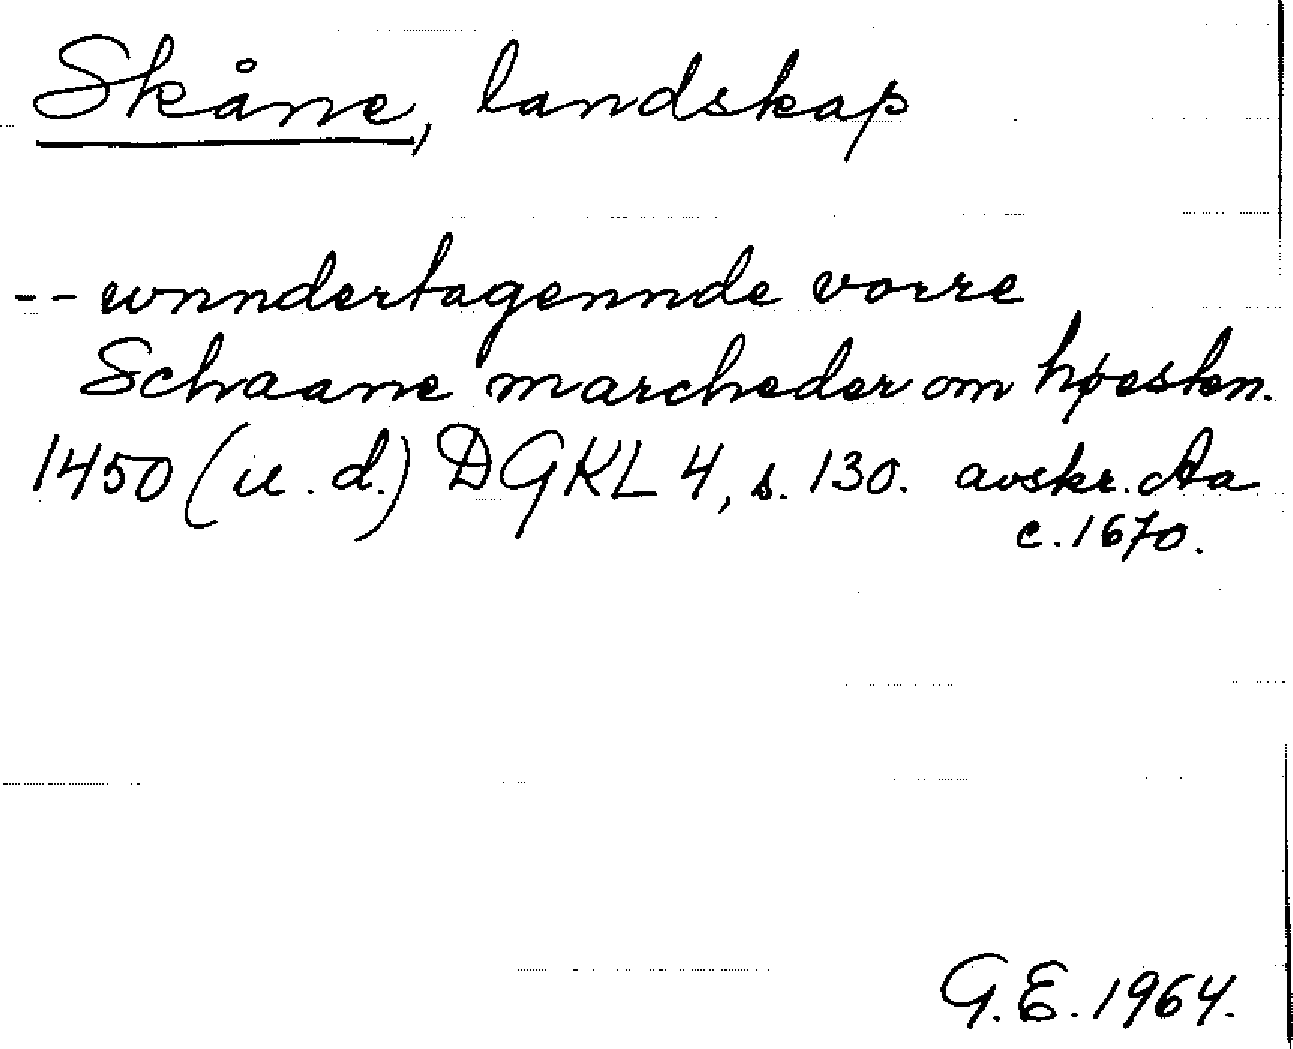 Skåne, landskap
-- wnndertagennde vorre
Schaane marcheder om høesten.
1450 (u. d.) DGKL 4, s. 130. avskr. Aa
c. 1670.
G.E. 1964.